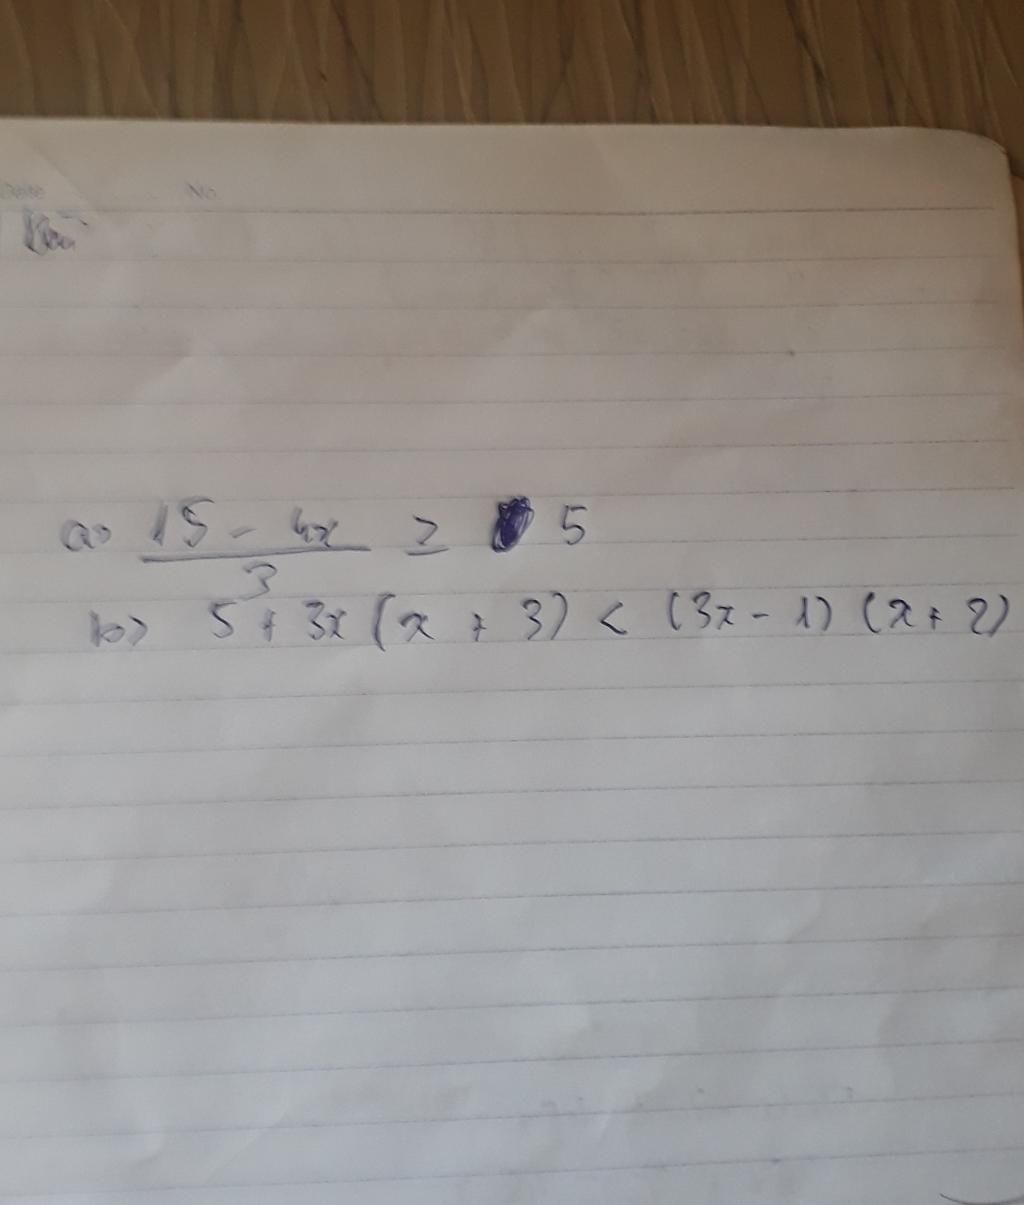 Date No.
a> 15 - 4x / 3 ≥ 5
b> 5 + 3x (x + 3) < (3x - 1) (x + 2)